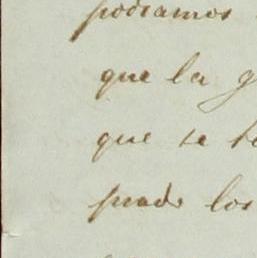 podiamos
que la g
que se
puede los